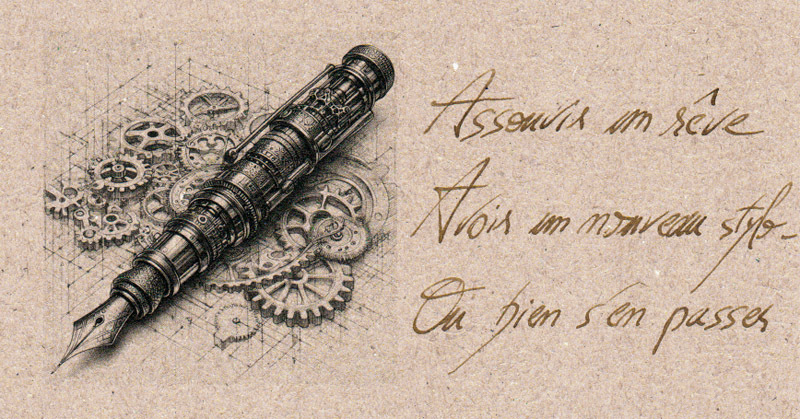 Assouvir un rêve
Avoir un nouveau stylo-
Ou bien s'en passer